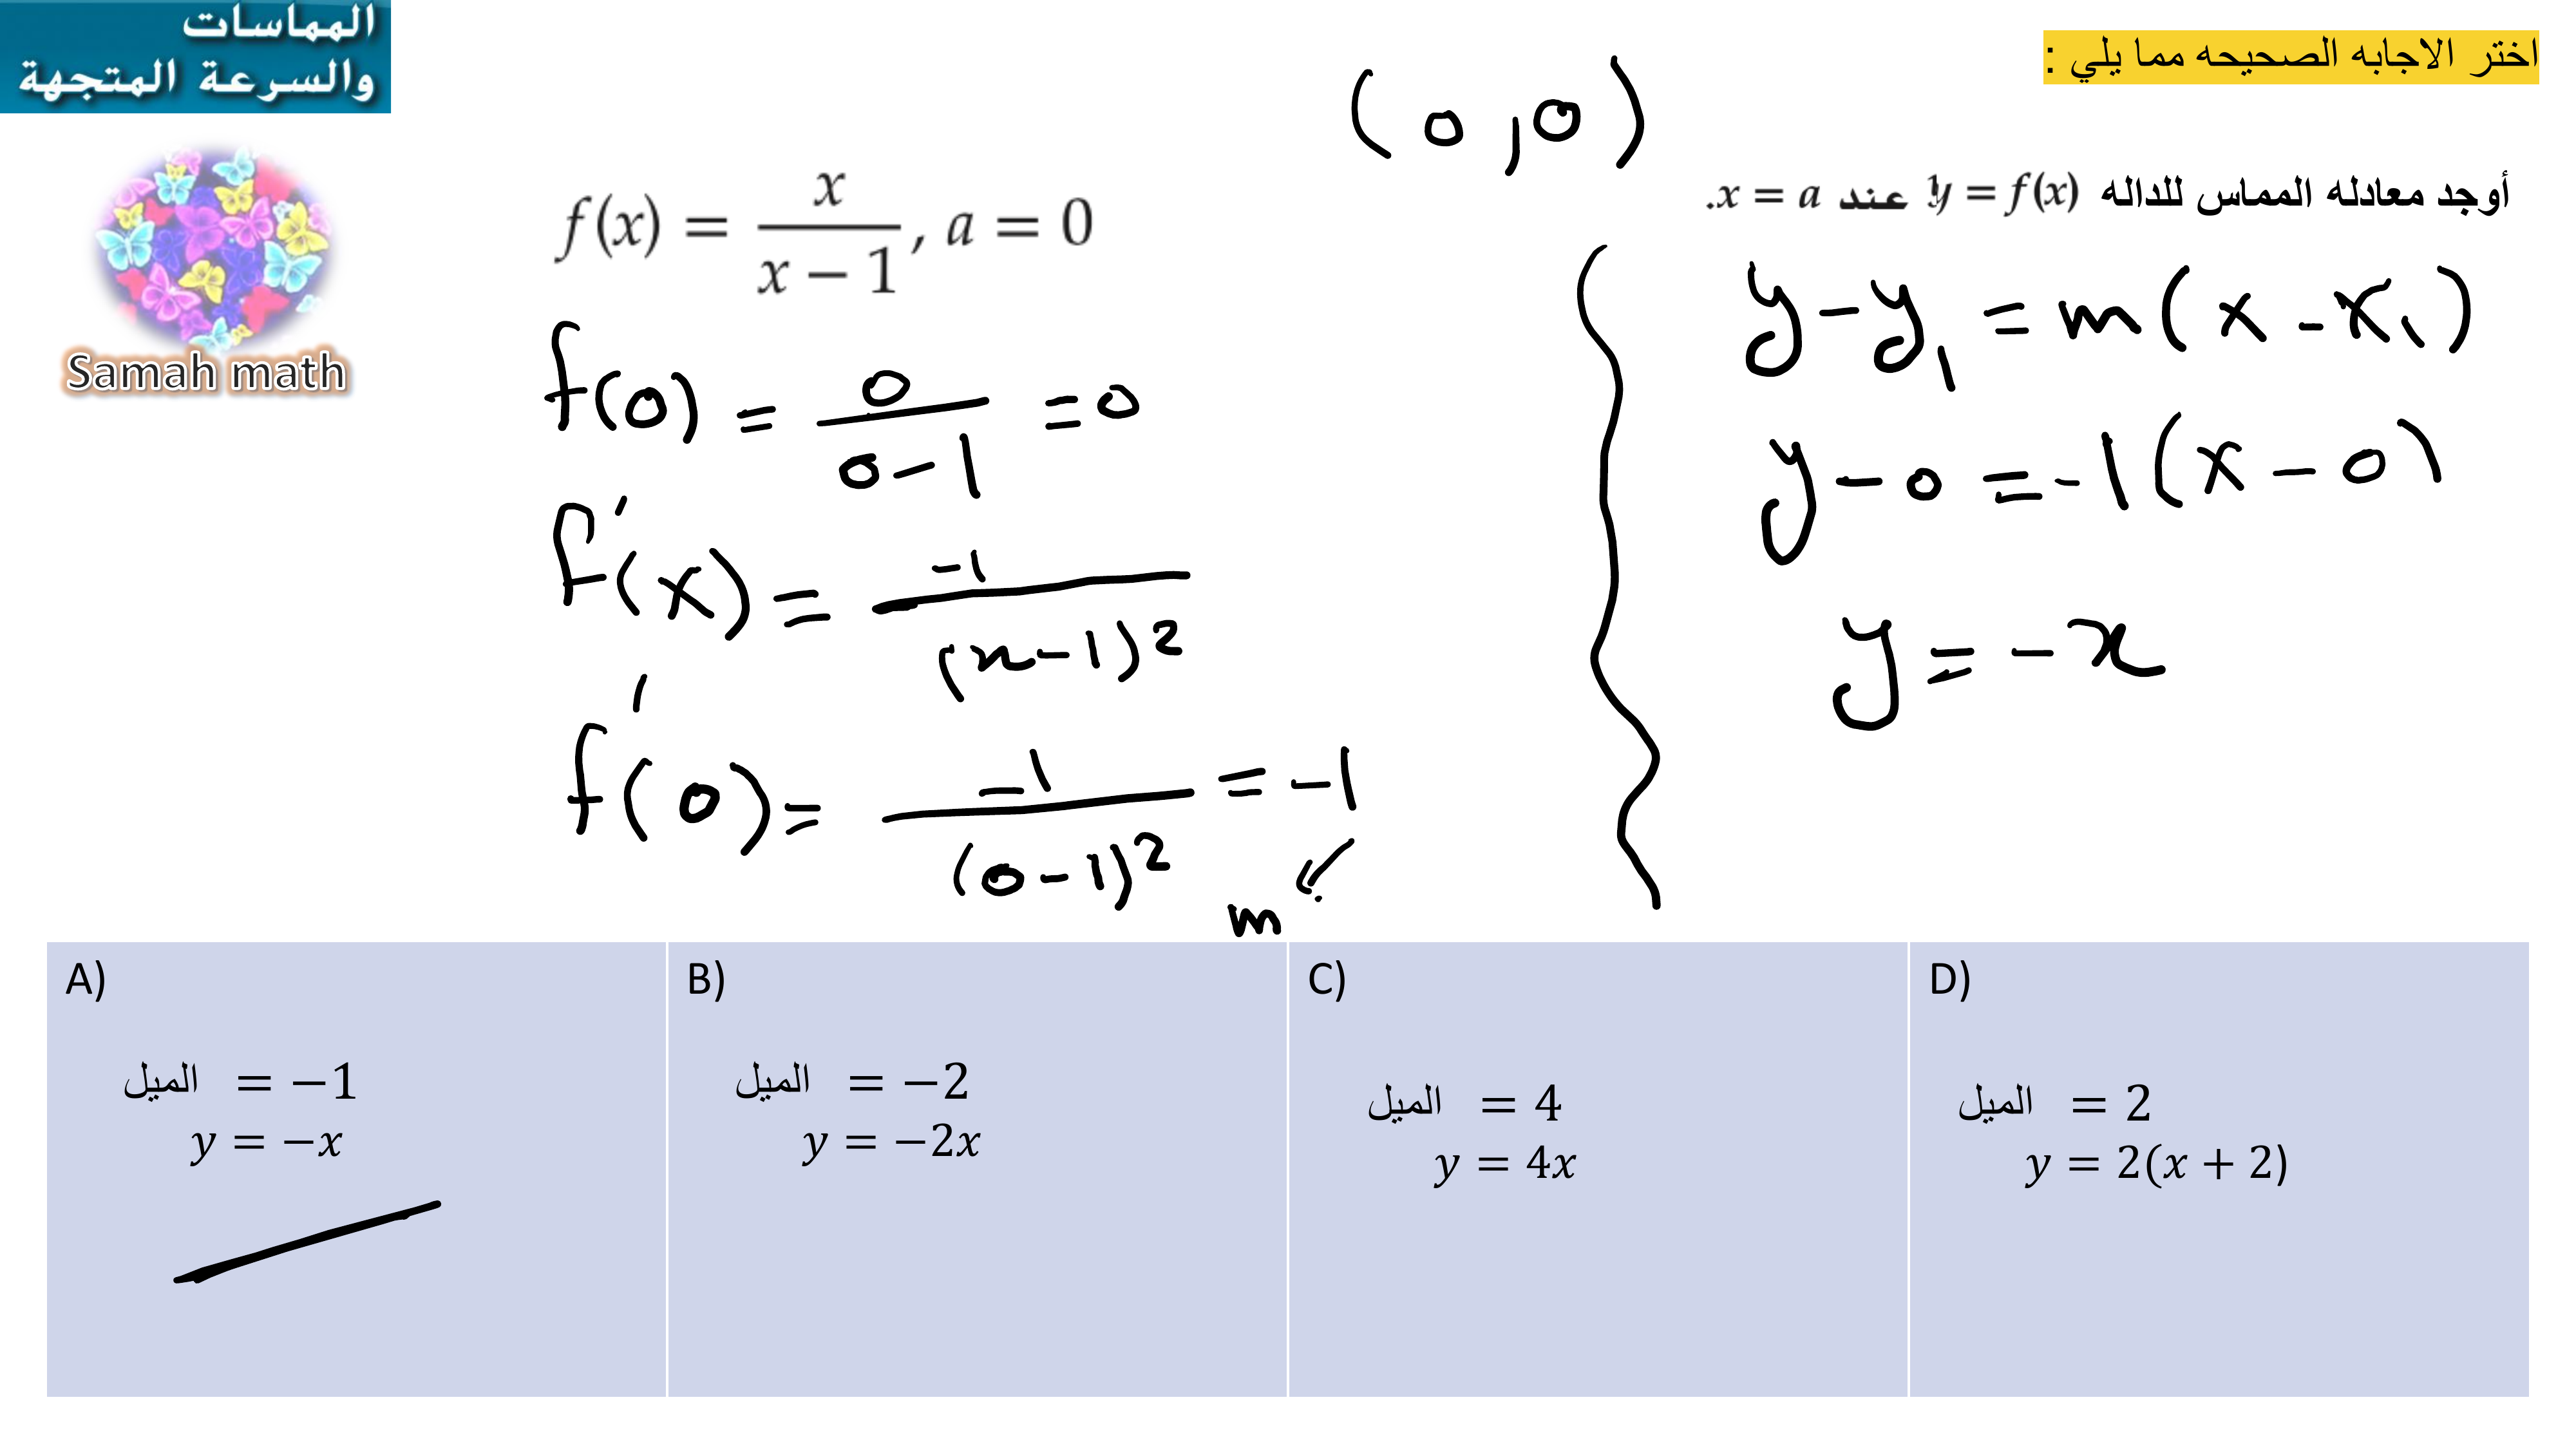 المماسات
والسرعة المتجهة
Samah math
اختر الاجابه الصحيحه مما يلي :
أوجد معادله المماس للداله y = f(x) عند x = a.
f(x) = x / (x − 1), a = 0
(0,0)
f(0) = 0 / (0-1) = 0
f'(x) = -1 / (x-1)²
f'(0) = -1 / (0-1)² = -1
m
y-y₁ = m(x-x₁)
y-0 = -1(x-0)
y = -x
A)
الميل = −1
y = −x
B)
الميل = −2
y = −2x
C)
الميل = 4
y = 4x
D)
الميل = 2
y = 2(x + 2)